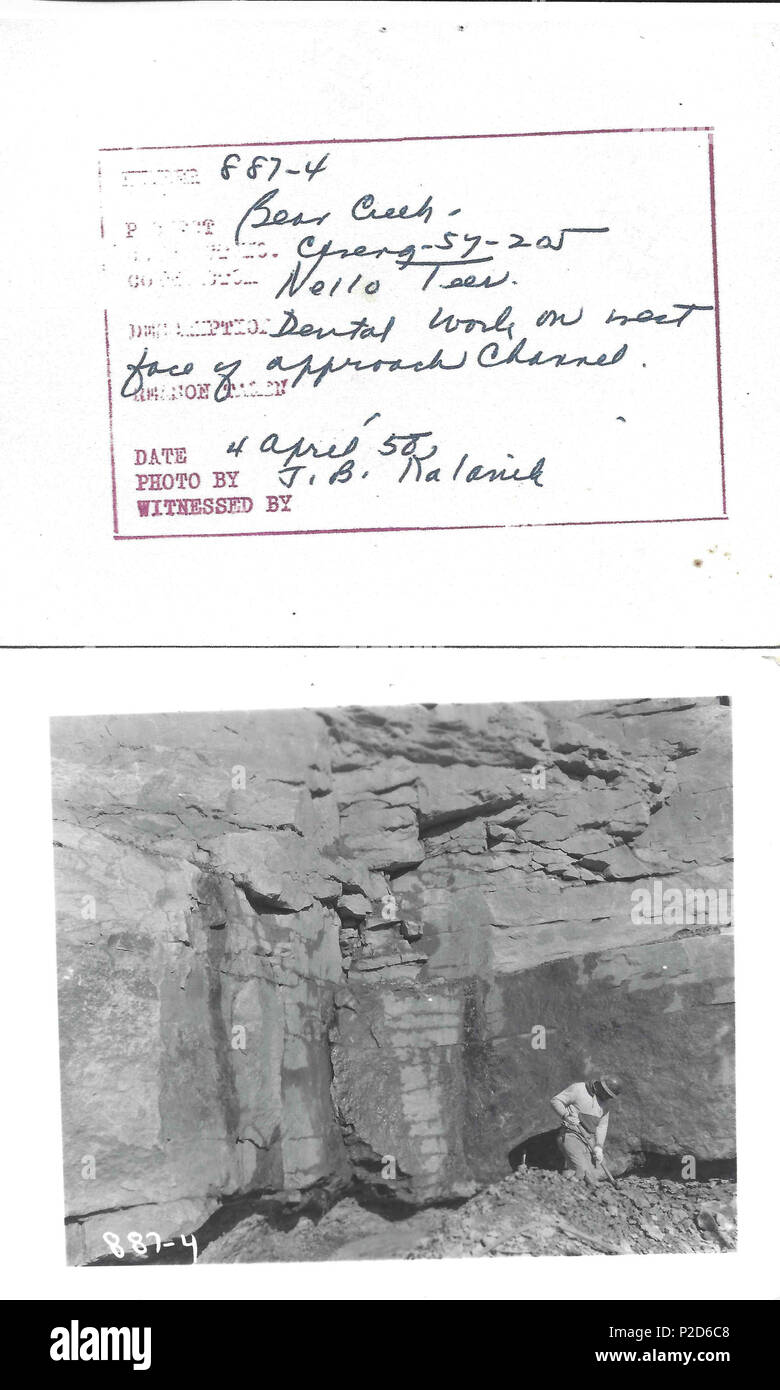 NUMBER 887-4
PROJECT Bear Creek.
-57-205
CONTRACTOR Nello Teer.
DESCRIPTION Dental Work on west
face of approach Channel.
REASON TAKEN
DATE 4 April 58
PHOTO BY J. B.
WITNESSED BY
887-4
alamy
a
alamy
Image ID: P2D6C8
www.alamy.com